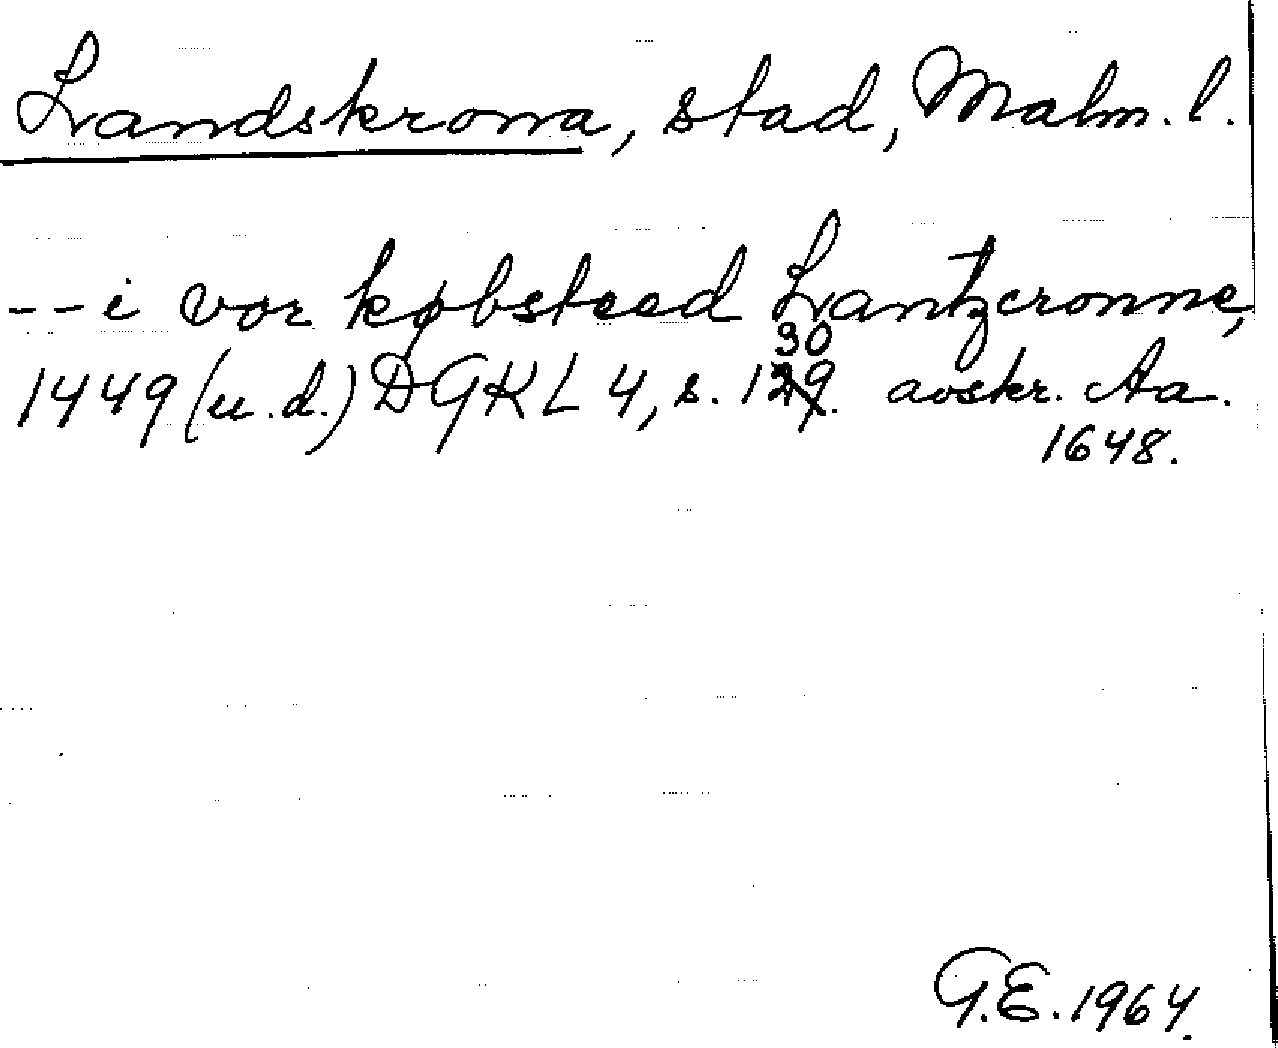 Landskrona, stad, Malm. l.
-- i vor købsteed Lantzcronne,
1449 (u.d.) DGKL 4, s. 130. avskr. Aa.
1648.
G.E. 1964.